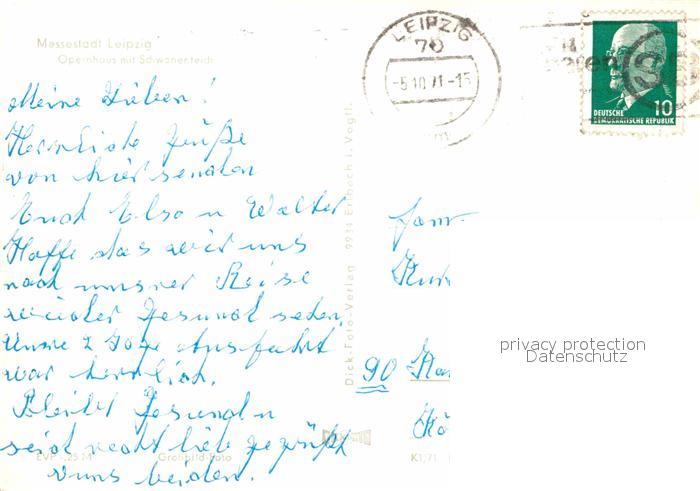 Messestadt Leipzig
Opernhaus mit Schwanenteich
LEIPZIG
70
-5.10.71.-15
10
DEUTSCHE
DEMOKRATISCHE REPUBLIK
Meine Lieben!
Herrliche Grüße
von hier senden
Euch Elsa u Walter
Hoffe das wir uns
nach unsrer Reise
wieder Gesund sehen.
Unsre 2 Tage Ausfahrt
war herrlich.
Bleibt Gesund u
seid recht lieb gegrüßt
v uns beiden.
Dick-Foto-Verlag 9934 Erlbach i. Vogtl.
Fam
90
privacy protection
Datenschutz
EVP -,25 M Großbild-Foto
K1/71